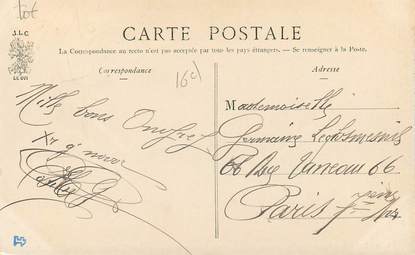 tot
J.L.C
CARTE POSTALE
La Correspondance au recto n'est pas acceptée par tous les pays étrangers. — Se renseigner à la Poste.
Correspondance
Adresse
LE GUI
Mademoiselle
Mille bons
Germaine
66 Rue Vaneau 66
Paris 7ème